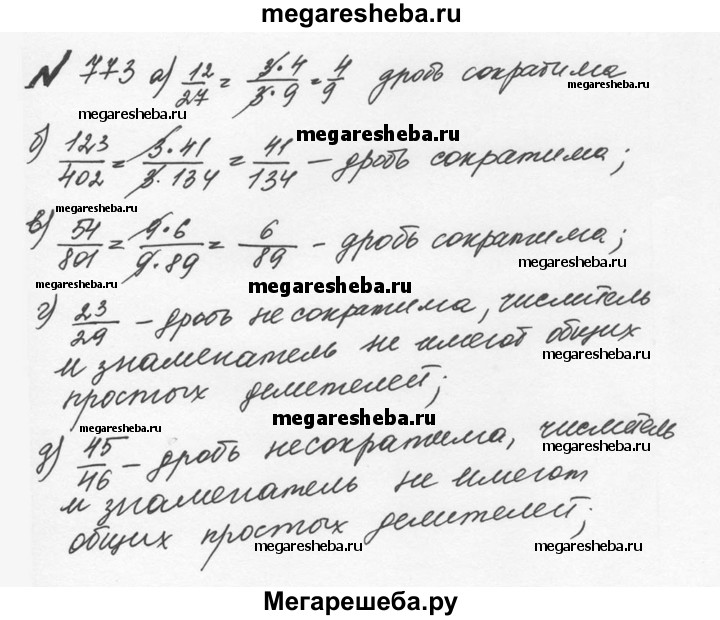 megaresheba.ru
№ 773 а) 12/27 = 3·4/3·9 = 4/9 дробь сократима
megaresheba.ru
megaresheba.ru
megaresheba.ru
б) 123/402 = 3·41/3·134 = 41/134 – дробь сократима;
megaresheba.ru
в) 54/801 = 9·6/9·89 = 6/89 – дробь сократима;
megaresheba.ru
megaresheba.ru
megaresheba.ru
г) 23/29 – дробь не сократима, числитель
и знаменатель не имеют общих
megaresheba.ru
простых делителей;
megaresheba.ru
д) 45/46 – дробь несократима, числитель
megaresheba.ru
и знаменатель не имеют
общих простых делителей;
megaresheba.ru
megaresheba.ru
Мегарешеба.ру